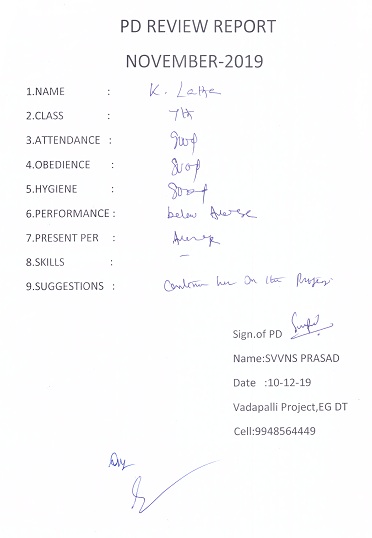 PD REVIEW REPORT
NOVEMBER-2019
1.NAME : K. Latha
2.CLASS : 7th
3.ATTENDANCE : Good
4.OBEDIENCE : Good
5.HYGIENE : Good
6.PERFORMANCE : below Average
7.PRESENT PER : Average
8.SKILLS : –
9.SUGGESTIONS : Continue her On the Project
Sign.of PD
Name:SVVNS PRASAD
Date :10-12-19
Vadapalli Project,EG DT
Cell:9948564449